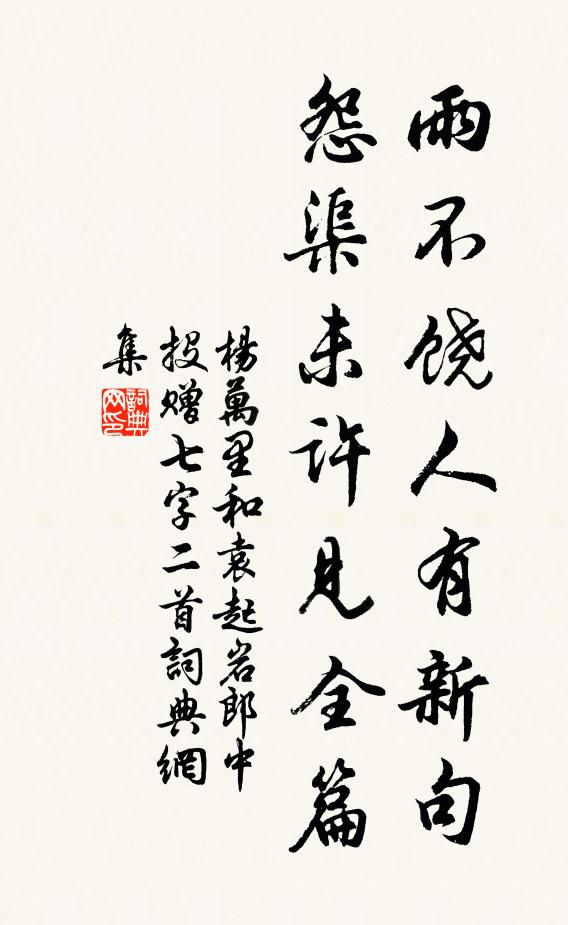 雨不饶人有新句
怨渠未许見全篇
楊萬里和袁起岩郎中
投赠七字二首詞典網
集
詞典
网印